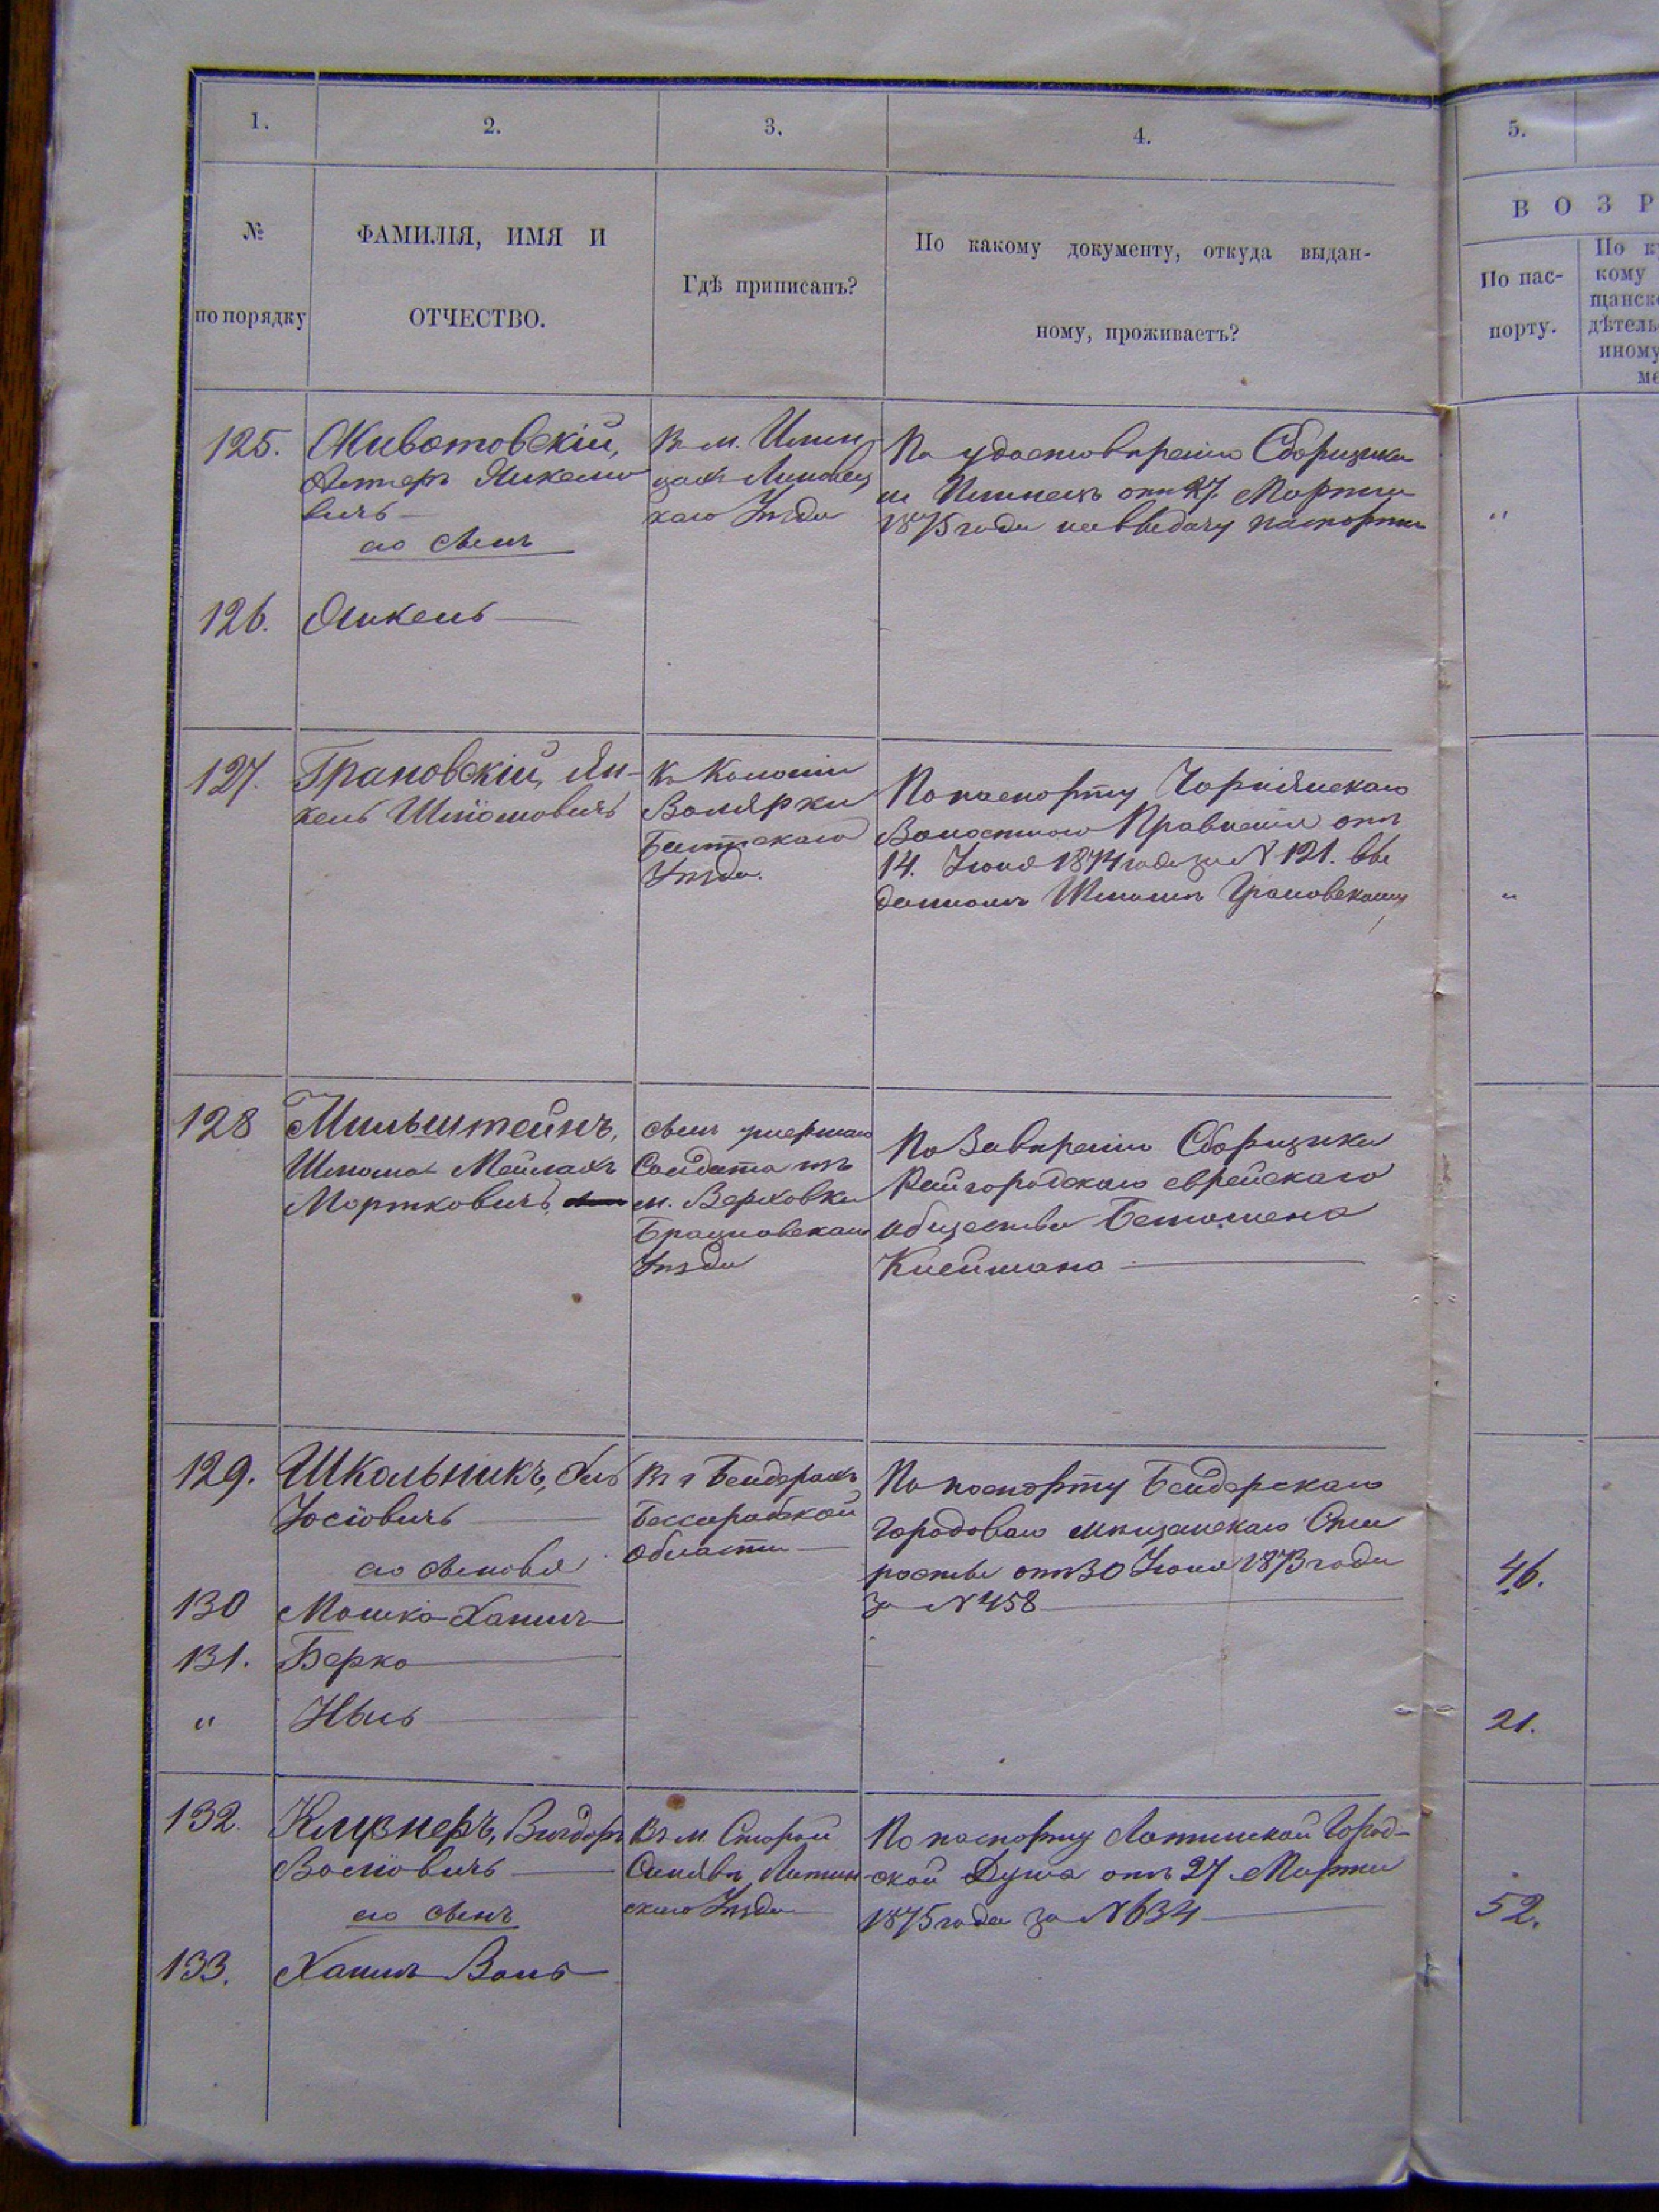 1.
2.
3.
4.
5.
№
по порядку
ФАМИЛІЯ, ИМЯ И
ОТЧЕСТВО.
Гдѣ приписанъ?
По какому документу, откуда выдан-
ному, проживаетъ?
ВОЗР
По пас-
порту.
По к
кому
щанск
дѣтель
иному
ме
125.
Животовскій,
вичъ
его сынъ
Въ м. Илин
цахъ Липовец
каго Уѣзда
По удостовѣренію Сборщика
м Илинецъ отъ 27. Марта
1875 года на выдачу паспорта
"
126.
Янкель
127.
Грановскій, Ян-
кель Шлiомовичъ
Въ Колоніи
Волярки
Балтскаго
Уѣзда.
По паспорту Чорнянскаго
Волостного Правленія отъ
14. Іюня 1874 года за № 121. вы
данномъ Шлiомѣ Грановскому
"
128
Мильштейнъ,
Шлiома Мейлахъ
Мортковичъ,
сынъ умершаго
Солдата изъ
м. Верховки
Брацлавскаго
Уѣзда
По Завѣренію Сборщика
Райгородскаго еврейскаго
общества
Клеймана
129.
Школьникъ,
Іосіовичъ
его сыновья
Въ г Бендерахъ
Бессарабской
Области
По паспорту Бендерскаго
Городоваго мѣщанскаго Ста
росты отъ 30 Іюня 1873 года
за № 458
46.
130
Мошко Хаимъ
131.
Берко
"
Нысь
21.
132.
Клузнеръ, Вигдоръ
Волiовичъ
его сынъ
Въ м. Старой
Синявѣ, Литин
скаго Уѣзда
По паспорту Литинской Город-
ской Думы отъ 27 Марта
1875 года за № 634
52.
133.
Хаимъ Воль